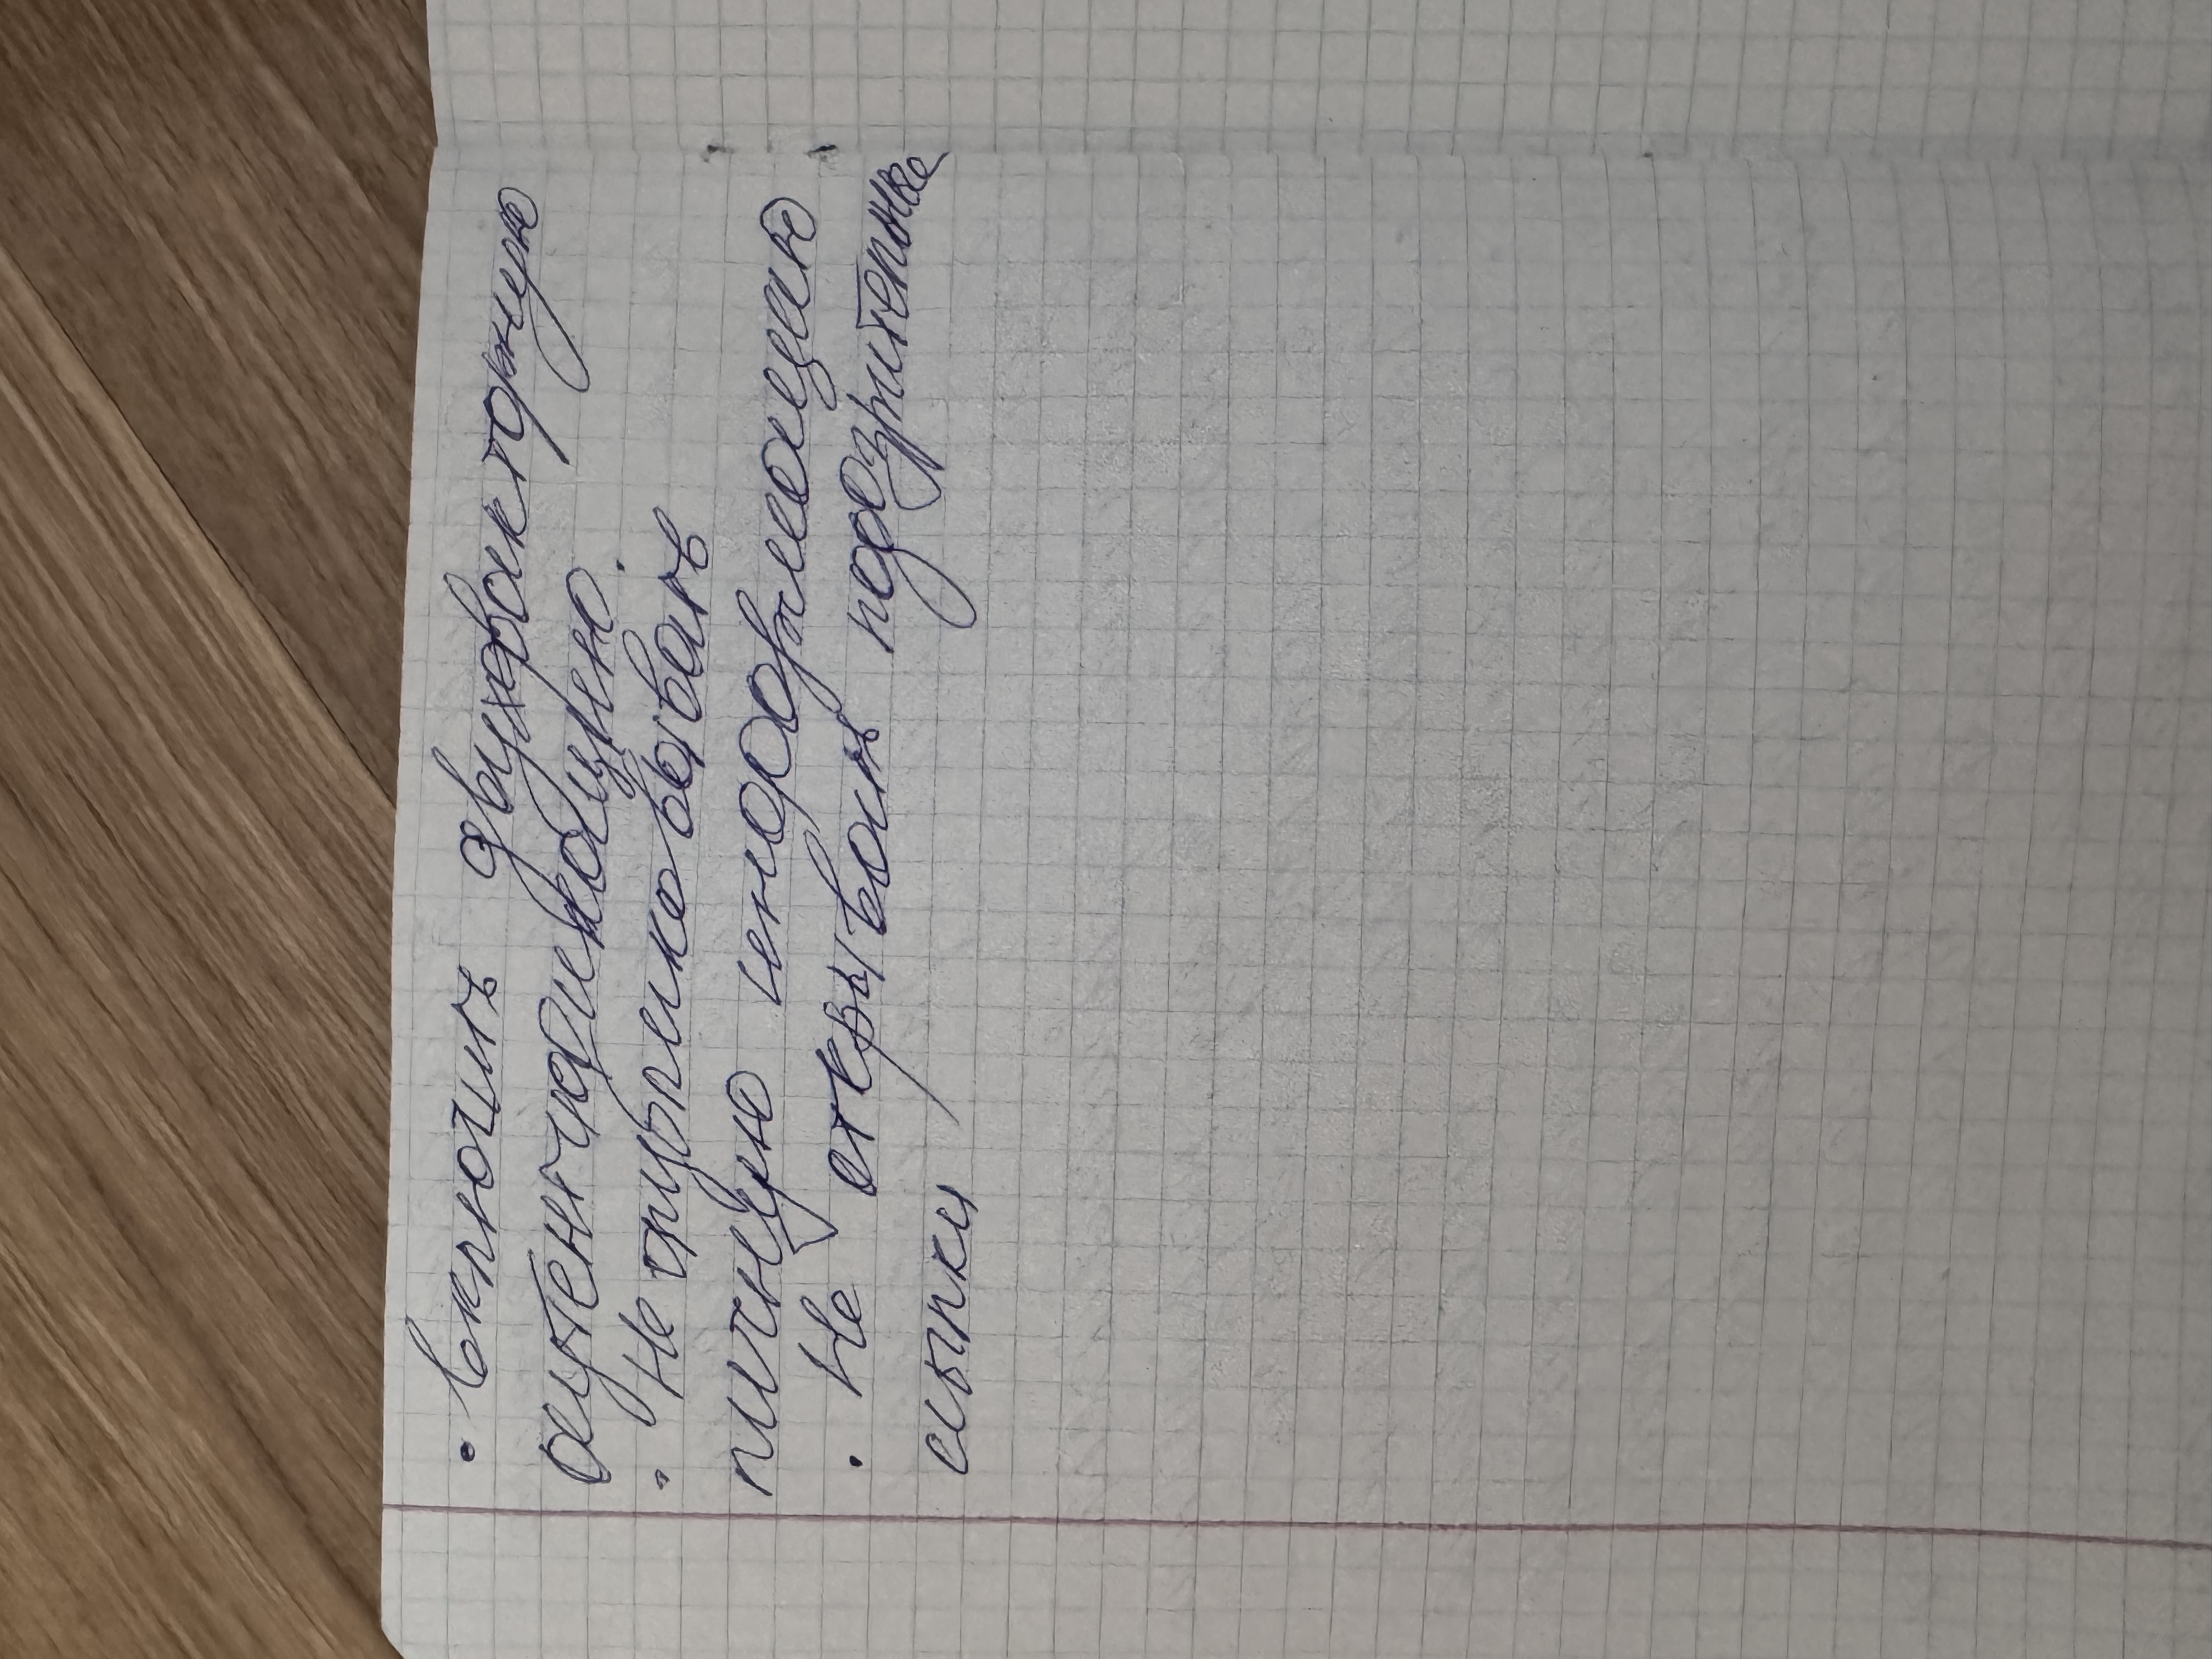 • Включить двухфакторную
аутентификацию.
• Не опубликовывать
личную информацию
• Не открывать подозрительные
ссылки